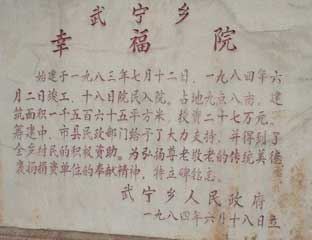 武宁乡
幸福院
始建于一九八三年七月十二日,一九八四年六
月二日竣工、十八日院民入院。占地九点八亩,建
筑面积一千五百六十五平方米,投资二十七万元。
筹建中,市县民政部门给予了大力支持,并得到了
全乡村民的积极资助。为弘扬尊老敬老的传统美德
褒扬捐资单位的奉献精神,特立碑铭志。
武宁乡人民政府
一九八四年六月十八日立